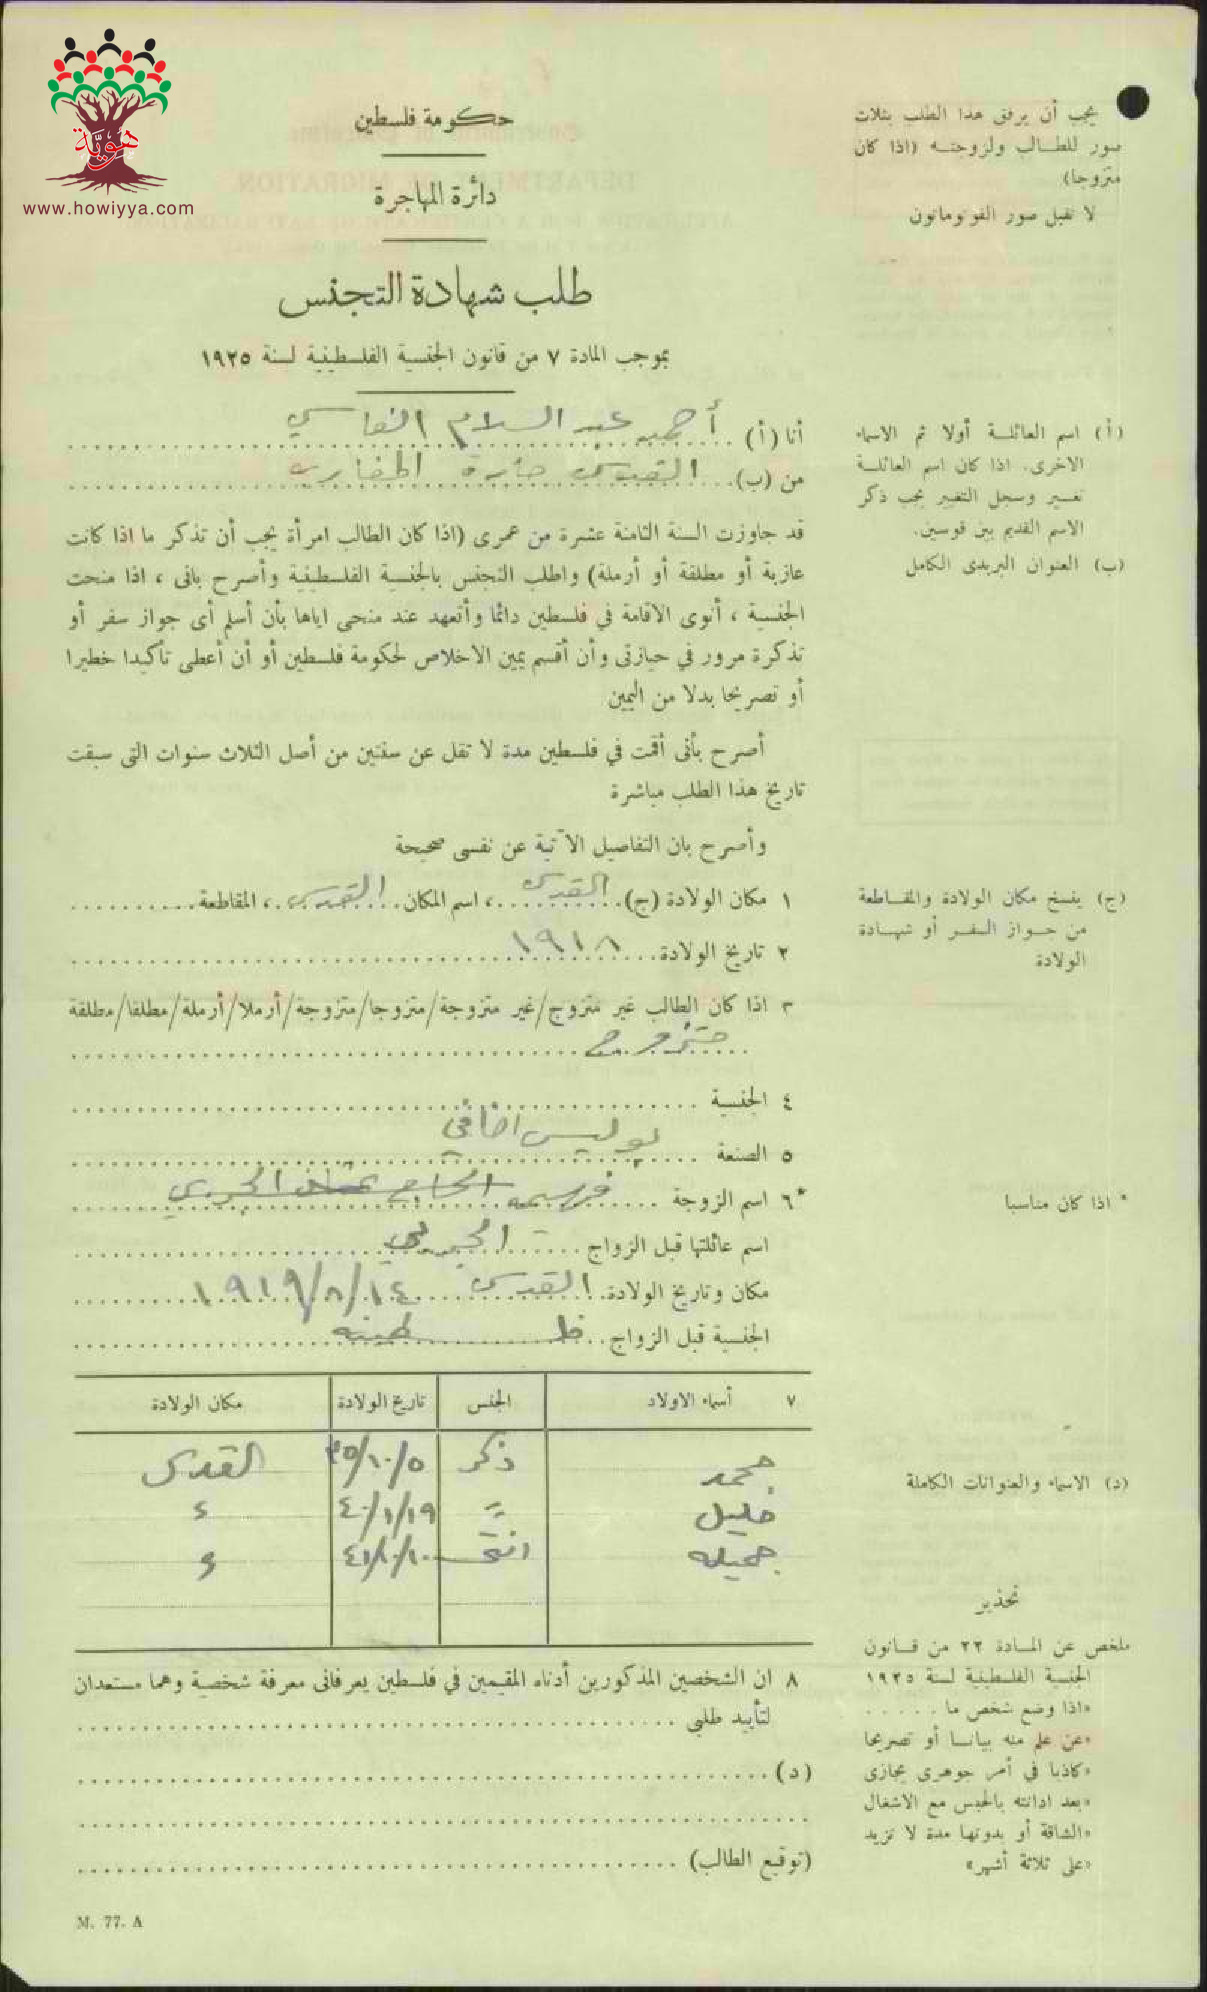 هُويّة
www.howiyya.com
حكومة فلسطين
دائرة المهاجرة
طلب شهادة التجنس
بموجب المادة ٧ من قانون الجنسية الفلسطينية لسنة ١٩٢٥
يجب أن يرفق هذا الطلب بثلاث
صور للطالب ولزوجته (اذا كان
متزوجا)
لا تقبل صور الفوتوماتون
أنا (أ) أحمد عبد السلام الفاسي
من (ب) القدس حارة المغاربة
(أ) اسم العائلة أولا ثم الاسماء
الاخرى. اذا كان اسم العائلة
تغير وسجل التغيير يجب ذكر
الاسم القديم بين قوسين.
(ب) العنوان البريدى الكامل
قد جاوزت السنة الثامنة عشرة من عمرى (اذا كان الطالب امرأة يجب أن تذكر ما اذا كانت
عازبة أو مطلقة أو أرملة) واطلب التجنس بالجنسية الفلسطينية وأصرح بانى ، اذا منحت
الجنسية ، أنوى الاقامة في فلسطين دائما وأتعهد عند منحى اياها بأن أسلم أى جواز سفر أو
تذكرة مرور في حيازتى وأن أقسم يمين الاخلاص لحكومة فلسطين أو أن أعطى تأكيدا خطيرا
أو تصريحا بدلا من اليمين
أصرح بأنى أقمت في فلسطين مدة لا تقل عن سنتين من أصل الثلاث سنوات التى سبقت
تاريخ هذا الطلب مباشرة
وأصرح بان التفاصيل الآتية عن نفسى صحيحة
١ مكان الولادة (ج) القدس ، اسم المكان القدس ، المقاطعة
٢ تاريخ الولادة ١٩١٨
(ج) ينسخ مكان الولادة والمقاطعة
من جواز السفر أو شهادة
الولادة
٣ اذا كان الطالب غير متزوج/غير متزوجة/متزوجا/متزوجة/أرملا/أرملة/مطلقا/مطلقة
متزوج
٤ الجنسية
٥ الصنعة بوليس اضافي
*٦ اسم الزوجة الحاج
* اذا كان مناسبا
اسم عائلتها قبل الزواج
مكان وتاريخ الولادة القدس ١٤/٨/١٩١٩
الجنسية قبل الزواج فلسطينيه
٧ أسماء الاولاد الجنس تاريخ الولادة مكان الولادة
محمد ذكر ٣٥/١٠/٥ القدس
خليل " ٤٠/١/١٩ "
جميله انثى ٤١/١٠/١٠ "
(د) الاسماء والعنوانات الكاملة
تحذير
ملخص عن المادة ٢٢ من قانون
الجنسية الفلسطينية لسنة ١٩٢٥
«اذا وضع شخص ما . . . . .
«عن علم منه بيانا أو تصريحا
«كاذبا في أمر جوهرى يجازى
«بعد ادانته بالحبس مع الاشغال
«الشاقة أو بدونها مدة لا تزيد
«على ثلاثة أشهر»
٨ ان الشخصين المذكورين أدناه المقيمين في فلسطين يعرفانى معرفة شخصية وهما مستعدان
لتأييد طلبي
(د)
(توقيع الطالب)
M. 77. A